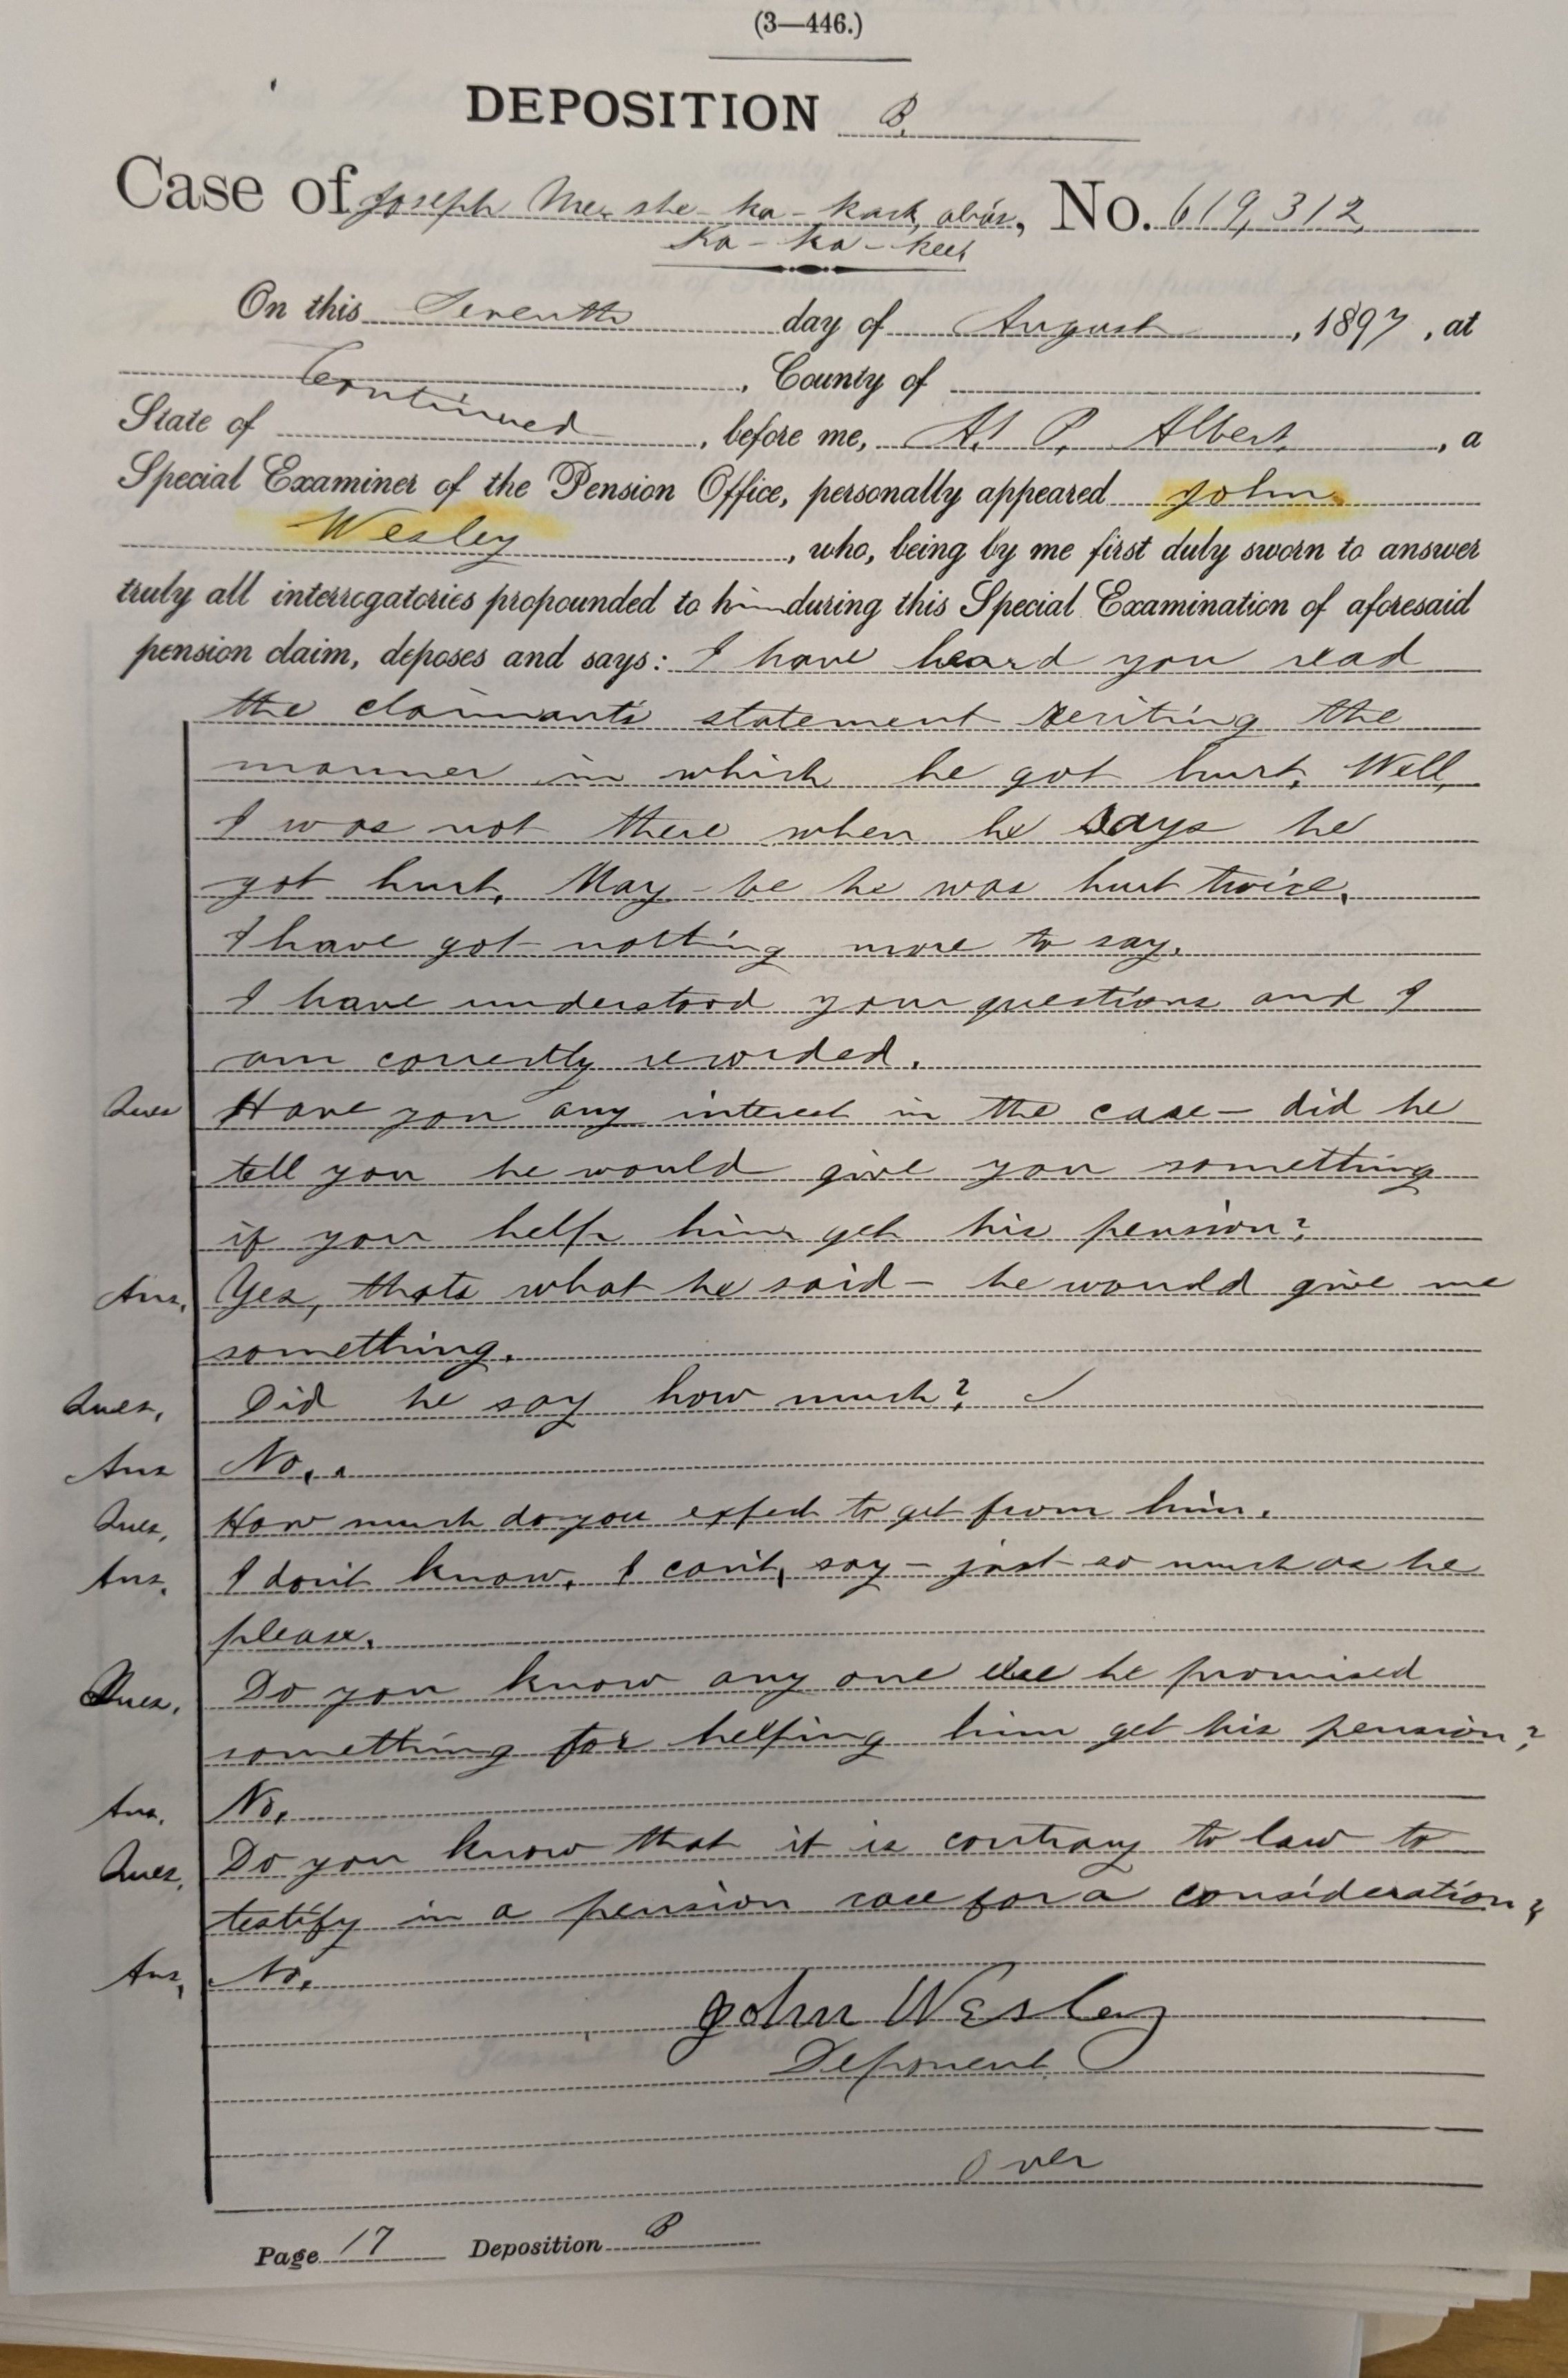 (3—446.)
DEPOSITION B.
Case of Joseph Me-she-ka-kack, alias, No. 619,312
Ka-ka-keek
On this Seventh day of August, 1897, at
Continued, County of
State of, before me, H. P. Albert, a
Special Examiner of the Pension Office, personally appeared John
Wesley, who, being by me first duly sworn to answer
truly all interrogatories propounded to him during this Special Examination of aforesaid
pension claim, deposes and says: I have heard you read
the claimants statement reciting the
manner in which he got hurt. Well,
I was not there when he says he
got hurt. May-be he was hurt twice.
I have got nothing more to say.
I have understood your questions and I
am correctly recorded.
Ques Have you any interest in the case — did he
tell you he would give you something
if you help him get his pension?
Ans. Yes, thats what he said — he would give me
something.
Ques. Did he say how much?
Ans No.
Ques. How much do you expect to get from him.
Ans. I don't know. I can't say — just so much as he
please.
Ques. Do you know any one else he promised
something for helping him get his pension?
Ans. No.
Ques. Do you know that it is contrary to law to
testify in a pension case for a consideration?
Ans. No.
John Wesley
Deponent
Over
Page 17 Deposition B